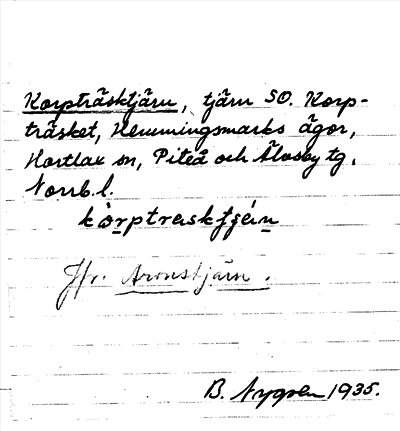 Korpträsktjärn, tjärn SO. Korp-
träsket, Hemmingsmarks ägor,
Hortlax sn, Piteå och Älvsby tg.
Norrb. l.
kòrptraskʃɟæ̀n
Jfr. Aronstjärn.
B. Nygren 1935.